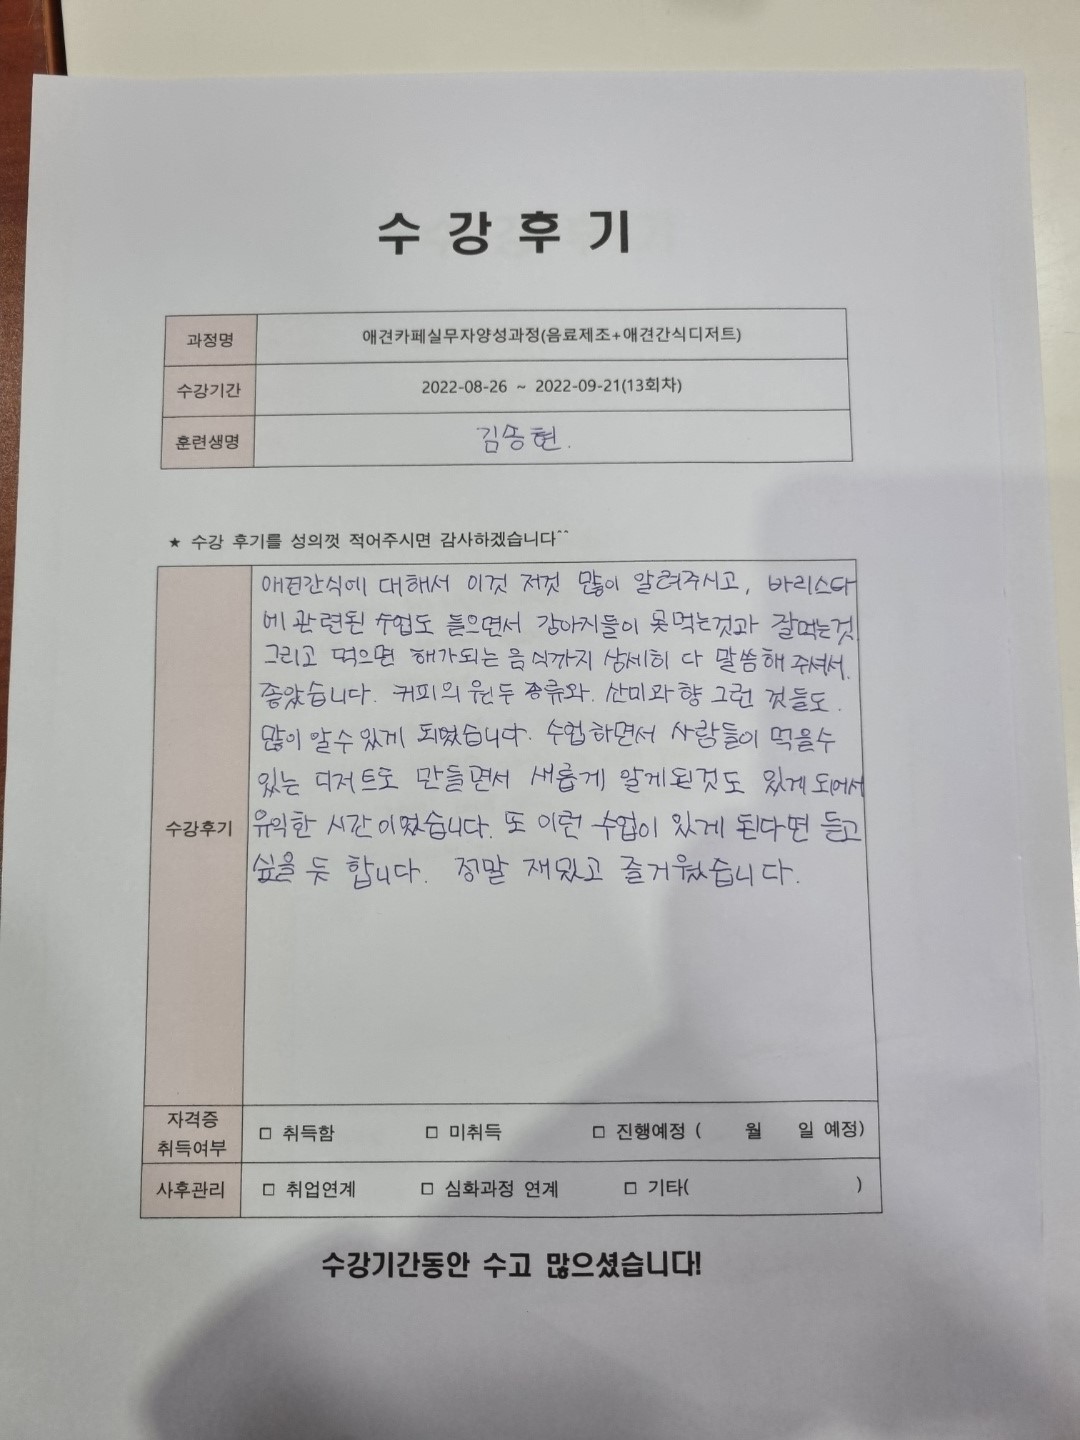 수 강 후 기
과정명 애견카페실무자양성과정(음료제조+애견간식디저트)
수강기간 2022-08-26 ~ 2022-09-21(13회차)
훈련생명 김송현.
★ 수강 후기를 성의껏 적어주시면 감사하겠습니다^^
애견간식에 대해서 이것 저것 많이 알려주시고, 바리스타
에 관련된 수업도 들으면서 강아지들이 못먹는것과 잘먹는것
그리고 먹으면 해가되는 음식까지 상세히 다 말씀해 주셔서.
좋았습니다. 커피의 원두 종류와. 산미과 향 그런 것들도.
많이 알수 있게 되었습니다. 수업하면서 사람들이 먹을수
있는 디저트도 만들면서 새롭게 알게된것도 있게 되어서
수강후기 유익한 시간이었습니다. 또 이런 수업이 있게 된다면 듣고
싶을 듯 합니다. 정말 재밌고 즐거웠습니다.
자격증
취득여부 □ 취득함 □ 미취득 □ 진행예정 ( 월 일 예정)
사후관리 □ 취업연계 □ 심화과정 연계 □ 기타( )
수강기간동안 수고 많으셨습니다!